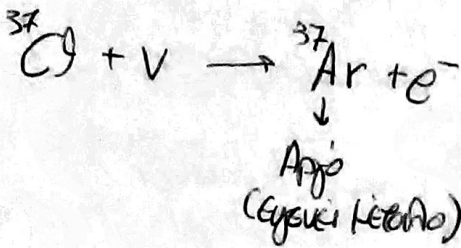 ³⁷Cl + ν → ³⁷Ar + e⁻
↓
Αργό
(ευγενές μέταλλο)